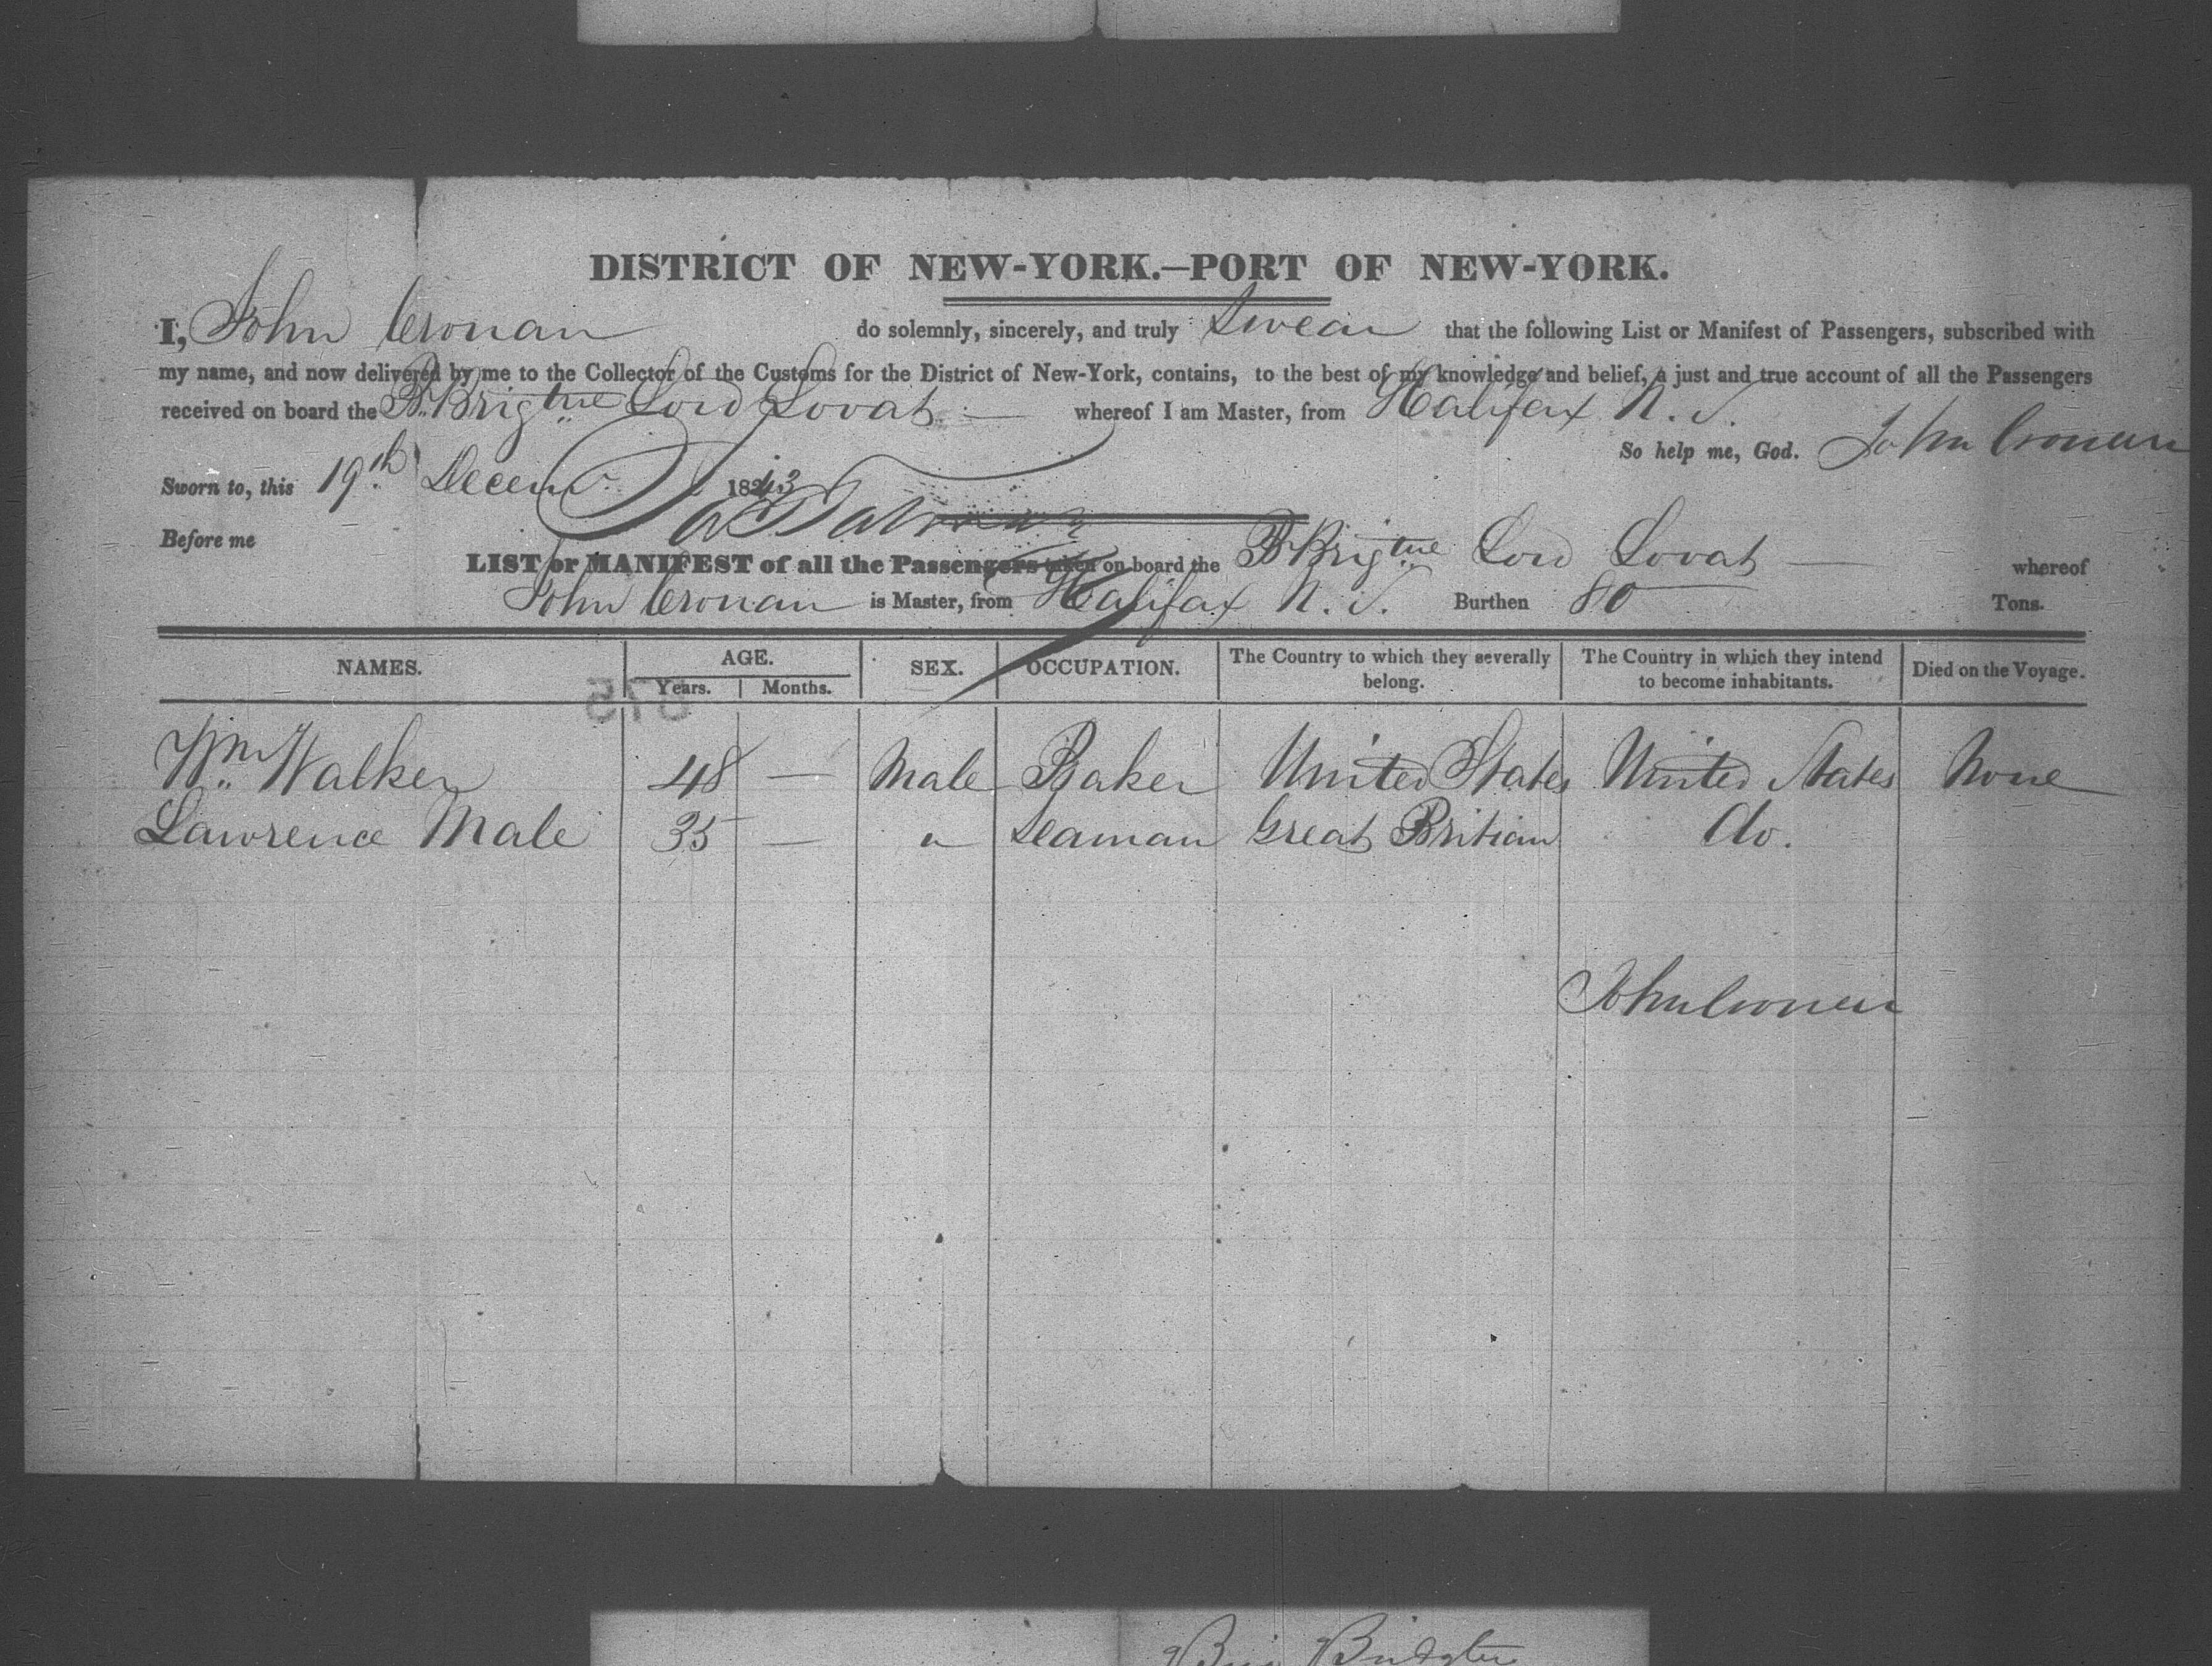 DISTRICT OF NEW-YORK.—PORT OF NEW-YORK.
I, John Cronan do solemnly, sincerely, and truly Swear that the following List or Manifest of Passengers, subscribed with
my name, and now delivered by me to the Collector of the Customs for the District of New-York, contains, to the best of my knowledge and belief, a just and true account of all the Passengers
received on board the B. Brigtne Lord Lovat — whereof I am Master, from Halifax N. S.
So help me, God. John Cronan
Sworn to, this 19th Decemr. 1843
Before me
LIST or MANIFEST of all the Passengers taken on board the B Brigtne Lord Lovat — whereof
John Cronan is Master, from Halifax N. S. Burthen 80 Tons.
NAMES. AGE. SEX. OCCUPATION. The Country to which they severally belong. The Country in which they intend to become inhabitants. Died on the Voyage.
Years. Months.
575
Wm Walker 48 — Male Baker United States United States None
Lawrence Male 35 — " Seaman Great Britian do.
John Cronan
Brig